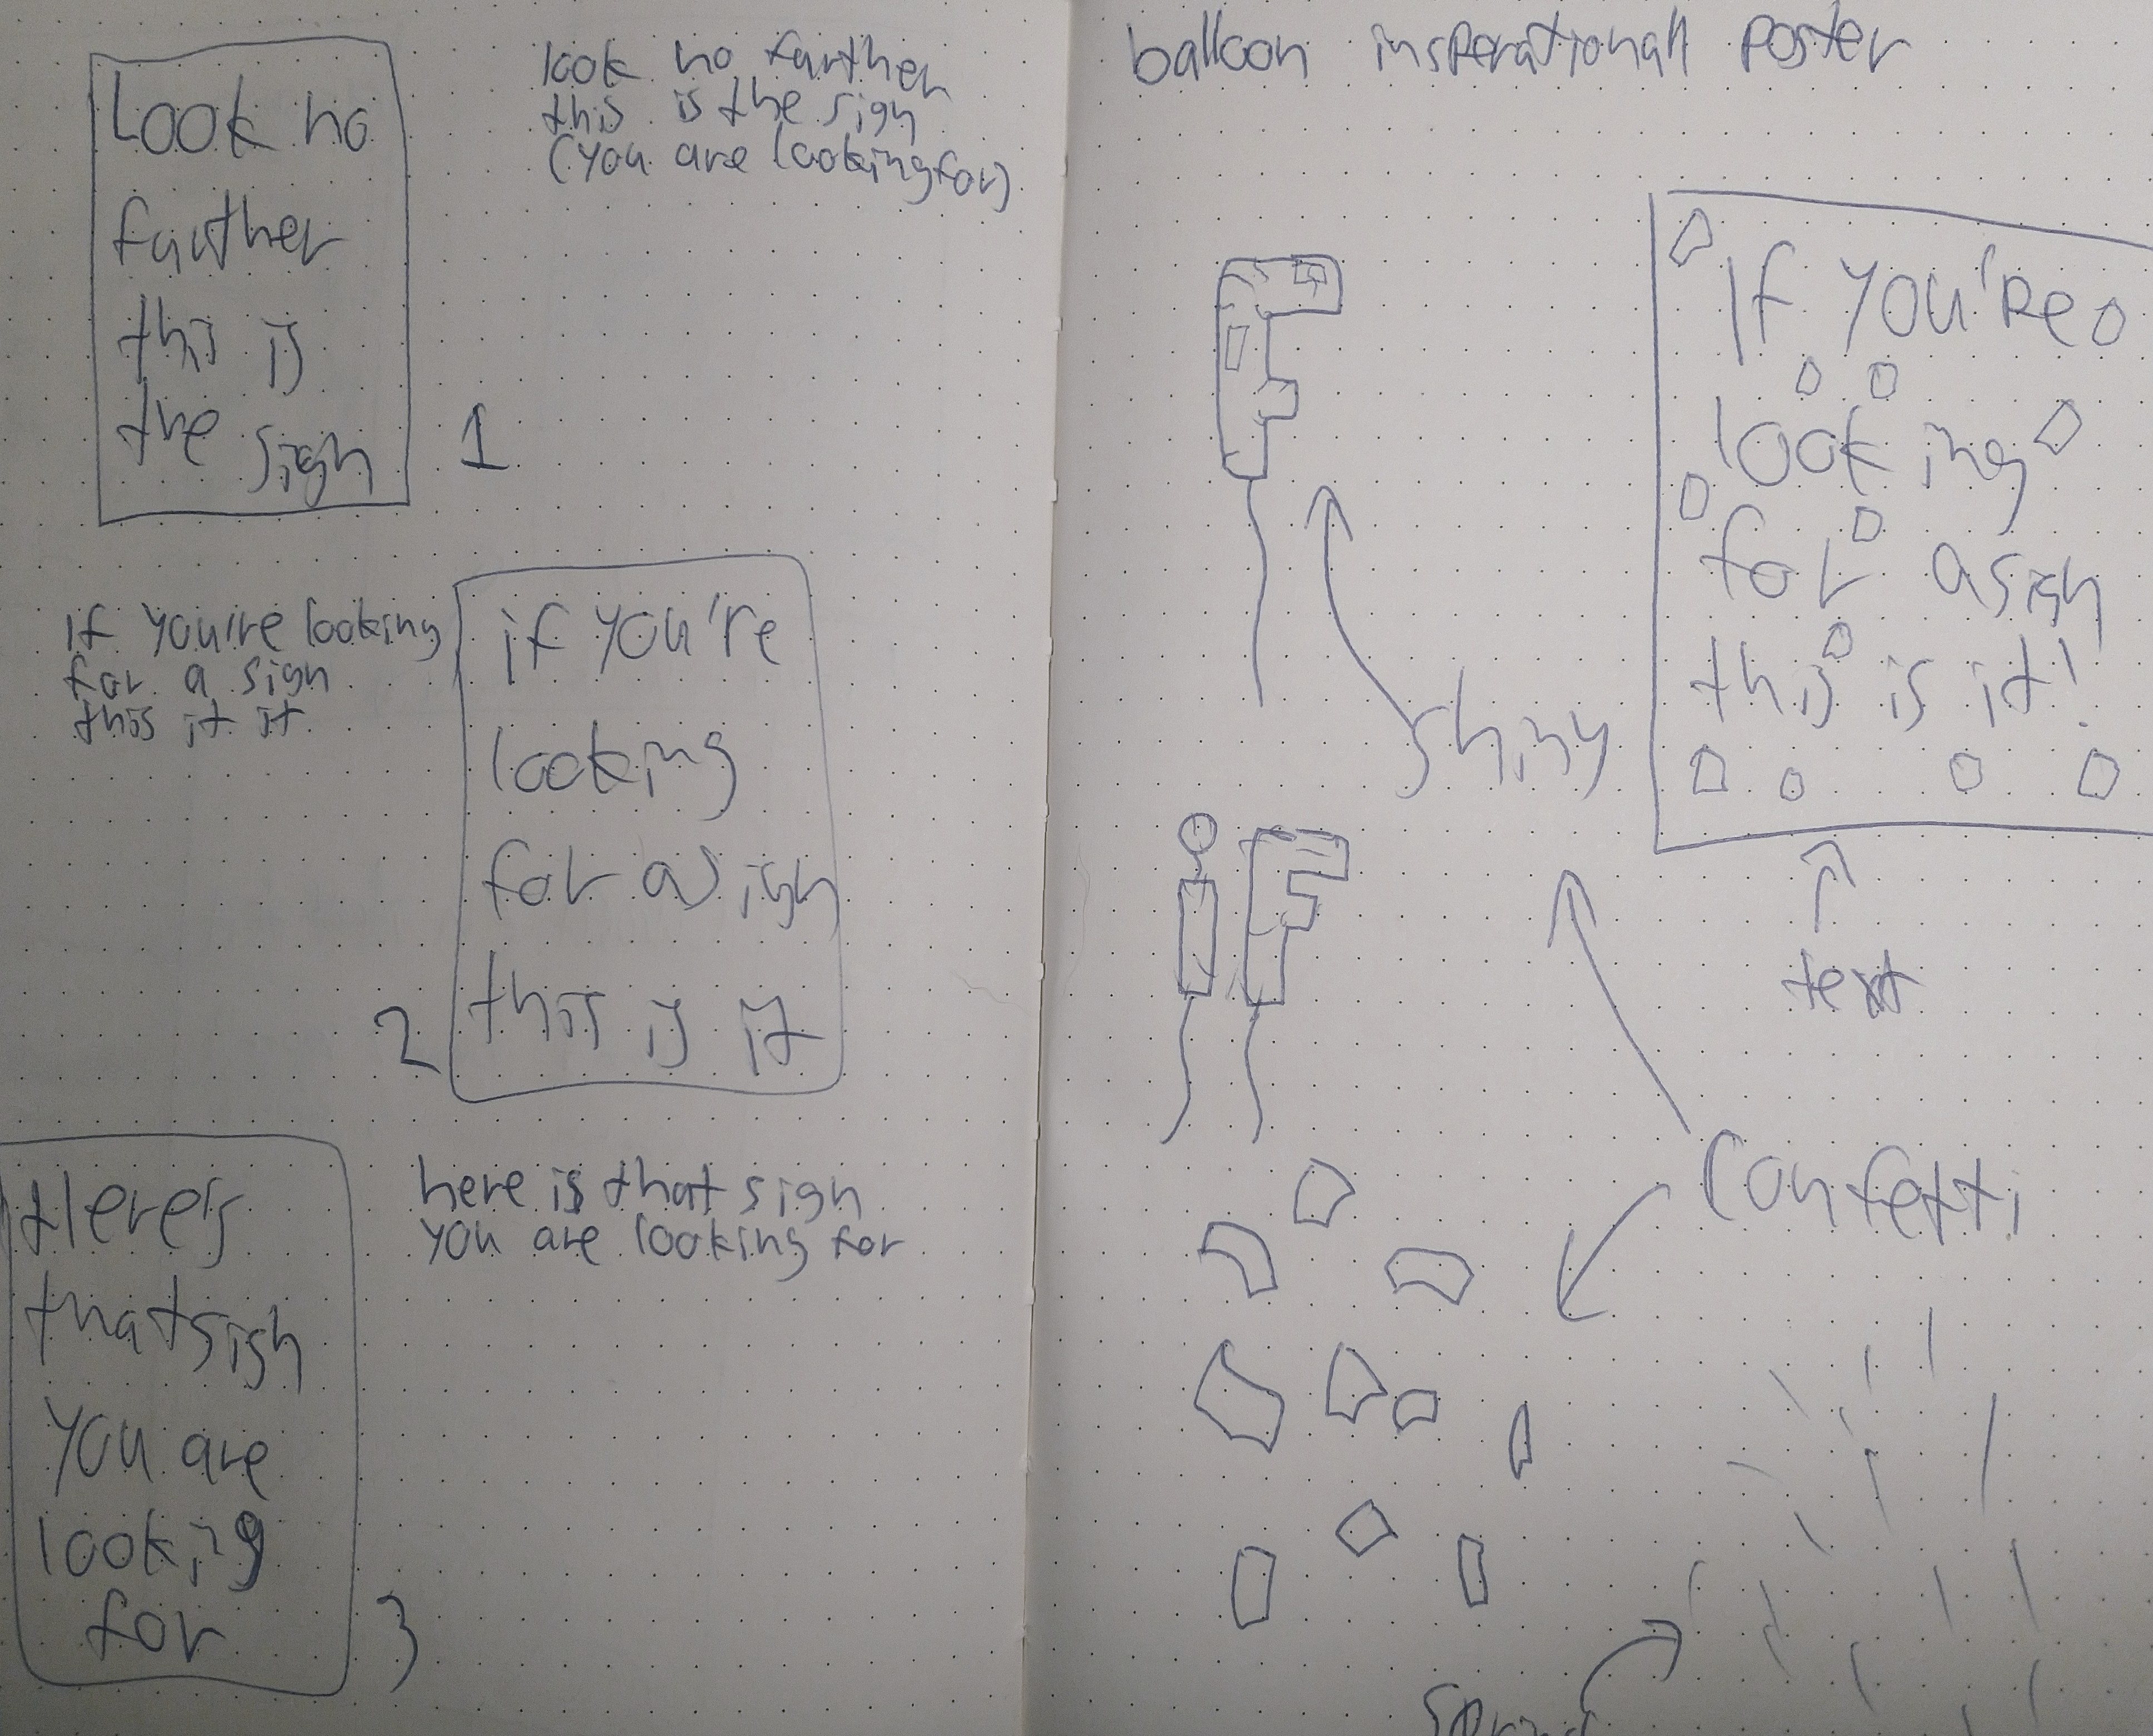 Look no
farther
this is
the sign
1
look no farther
this is the sign
(you are looking for)
if you're looking
for a sign
this it it
if you're
looking
for a sign
this is it
2
Here's
that sign
you are
looking
for
3
here is that sign
you are looking for
balloon insperationall poster
If you're
looking
for a sign
this is it!
shiny
text
iF
Confetti